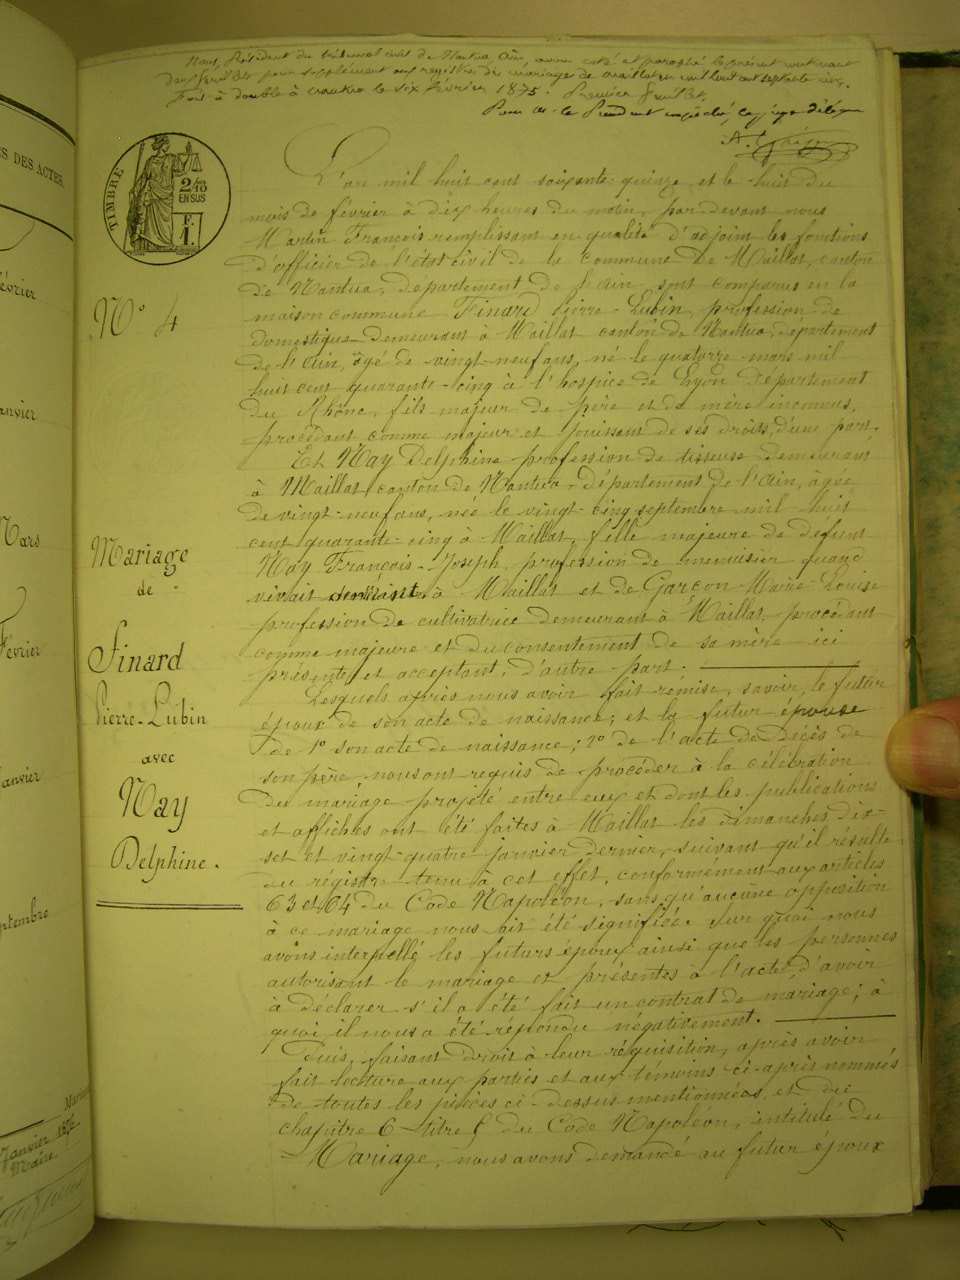 Nous, Président du tribunal civil de Nantua Ain, avons coté et paraphé le présent contenant
deux feuillets pour supplément aux registres des mariages de Maillat en mil huit cent septante cinq.
Fait à double à Nantua le six février 1875. Premier feuillet.
Pour M. le Président empêché, le juge délégué
S DES ACTES.
TIMBRE
2/10
EN SUS
F.
1.
L'an mil huit cent soixante-quinze et le huit du
mois de février à dix heures du matin, par devant nous
Martin François remplissant en qualité d'adjoint les fonctions
d'officier de l'état civil de la commune de Maillat, canton
de Nantua, département de l'Ain sont comparus en la
N° 4
maison commune Finard Pierre-Lubin, profession de
domestique demeurant à Maillat canton de Nantua, département
de l'Ain, âgé de vingt-neuf ans, né le quatorze mars mil
huit cent quarante-cinq à l'hospice de Lyon département
du Rhône, fils majeur de père et de mère inconnus,
procédant comme majeur et jouissant de ses droits, d'une part.
Et Nay Delphine profession de tisseuse demeurant
à Maillat, canton de Nantua, département de l'Ain, âgée
de vingt-neuf ans, née le vingt-cinq septembre mil huit
cent quarante-cinq à Maillat, fille majeure de défunt
Nay François-Joseph, profession de menuisier quand
vivait demeurant à Maillat et de Garçon Marie-Louise
profession de cultivatrice demeurant à Maillat, procédant
comme majeure et du consentement de sa mère ici
présente et acceptant, d'autre part.
Mariage
de
Finard
Pierre-Lubin
avec
Nay
Delphine.
Lesquels après nous avoir fait remise, savoir, le futur
époux de son acte de naissance; et la futur épouse
de 1° son acte de naissance; 2° de l'acte de décès de
son père, nous ont requis de procéder à la célébration
du mariage projeté entre eux et dont les publications
et affiches ont été faites à Maillat les dimanches dix-
sept et vingt-quatre janvier dernier, suivant qu'il résulte
du régistre tenu à cet effet, conformément aux articles
63 et 64 du Code Napoléon, sans qu'aucune opposition
à ce mariage nous ait été signifiée. Sur quoi nous
avons interpellé les futurs époux ainsi que les personnes
autorisant le mariage et présentes à l'acte, d'avoir
à déclarer s'il a été fait un contrat de mariage; à
quoi il nous a été répondu négativement.
Puis, faisant droit à leur réquisition, après avoir
fait lecture aux parties et aux témoins ci-après nommés
de toutes les pièces ci-dessus mentionnées, et du
chapitre 6 titre 5 du Code Napoléon, intitulé du
Mariage, nous avons demandé au futur époux